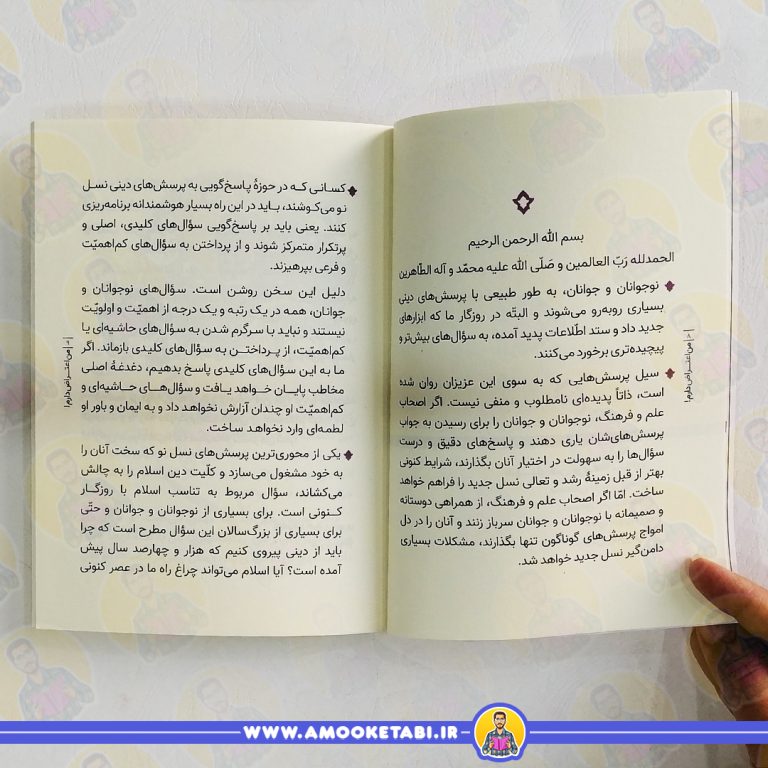 بسم الله الرحمن الرحیم
الحمدلله رَبّ العالمین و صَلّی الله علیه محمّد و آله الطّاهرین
نوجوانان و جوانان، به طور طبیعی با پرسش‌های دینی
بسیاری روبه‌رو می‌شوند و البتّه در روزگار ما که ابزارهای
جدید داد و ستد اطّلاعات پدید آمده، به سؤال‌های بیش‌تر و
پیچیده‌تری برخورد می‌کنند.
سیل پرسش‌هایی که به سوی این عزیزان روان شده
است، ذاتاً پدیده‌ای نامطلوب و منفی نیست. اگر اصحاب
علم و فرهنگ، نوجوانان و جوانان را برای رسیدن به جواب
پرسش‌های‌شان یاری دهند و پاسخ‌های دقیق و درست
سؤال‌ها را به سهولت در اختیار آنان بگذارند، شرایط کنونی
بهتر از قبل زمینهٔ رشد و تعالی نسل جدید را فراهم خواهد
ساخت. امّا اگر اصحاب علم و فرهنگ، از همراهی دوستانه
و صمیمانه با نوجوانان و جوانان سرباز زنند و آنان را در دل
امواج پرسش‌های گوناگون تنها بگذارند، مشکلات بسیاری
دامن‌گیر نسل جدید خواهد شد.
من اعتراض دارم!
کسانی که در حوزهٔ پاسخ‌گویی به پرسش‌های دینی نسل
نو می‌کوشند، باید در این راه بسیار هوشمندانه برنامه‌ریزی
کنند. یعنی باید بر پاسخ‌گویی سؤال‌های کلیدی، اصلی و
پرتکرار متمرکز شوند و از پرداختن به سؤال‌های کم‌اهمیّت
و فرعی بپرهیزند.
دلیل این سخن روشن است. سؤال‌های نوجوانان و
جوانان، همه در یک رتبه و یک درجه از اهمیّت و اولویّت
نیستند و نباید با سرگرم شدن به سؤال‌های حاشیه‌ای یا
کم‌اهمیّت، از پرداختن به سؤال‌های کلیدی بازماند. اگر
ما به این سؤال‌های کلیدی پاسخ بدهیم، دغدغهٔ اصلی
مخاطب پایان خواهد یافت و سؤال‌های حاشیه‌ای و
کم‌اهمیّت او چندان آزارش نخواهد داد و به ایمان و باور او
لطمه‌ای وارد نخواهد ساخت.
یکی از محوری‌ترین پرسش‌های نسل نو که سخت آنان را
به خود مشغول می‌سازد و کلّیت دین اسلام را به چالش
می‌کشاند، سؤال مربوط به تناسب اسلام با روزگار
کنونی است. برای بسیاری از نوجوانان و جوانان و حتّی
برای بسیاری از بزرگ‌سالان این سؤال مطرح است که چرا
باید از دینی پیروی کنیم که هزار و چهارصد سال پیش
آمده است؟ آیا اسلام می‌تواند چراغ راه ما در عصر کنونی
من اعتراض دارم!
WWW.AMOOKETABI.IR